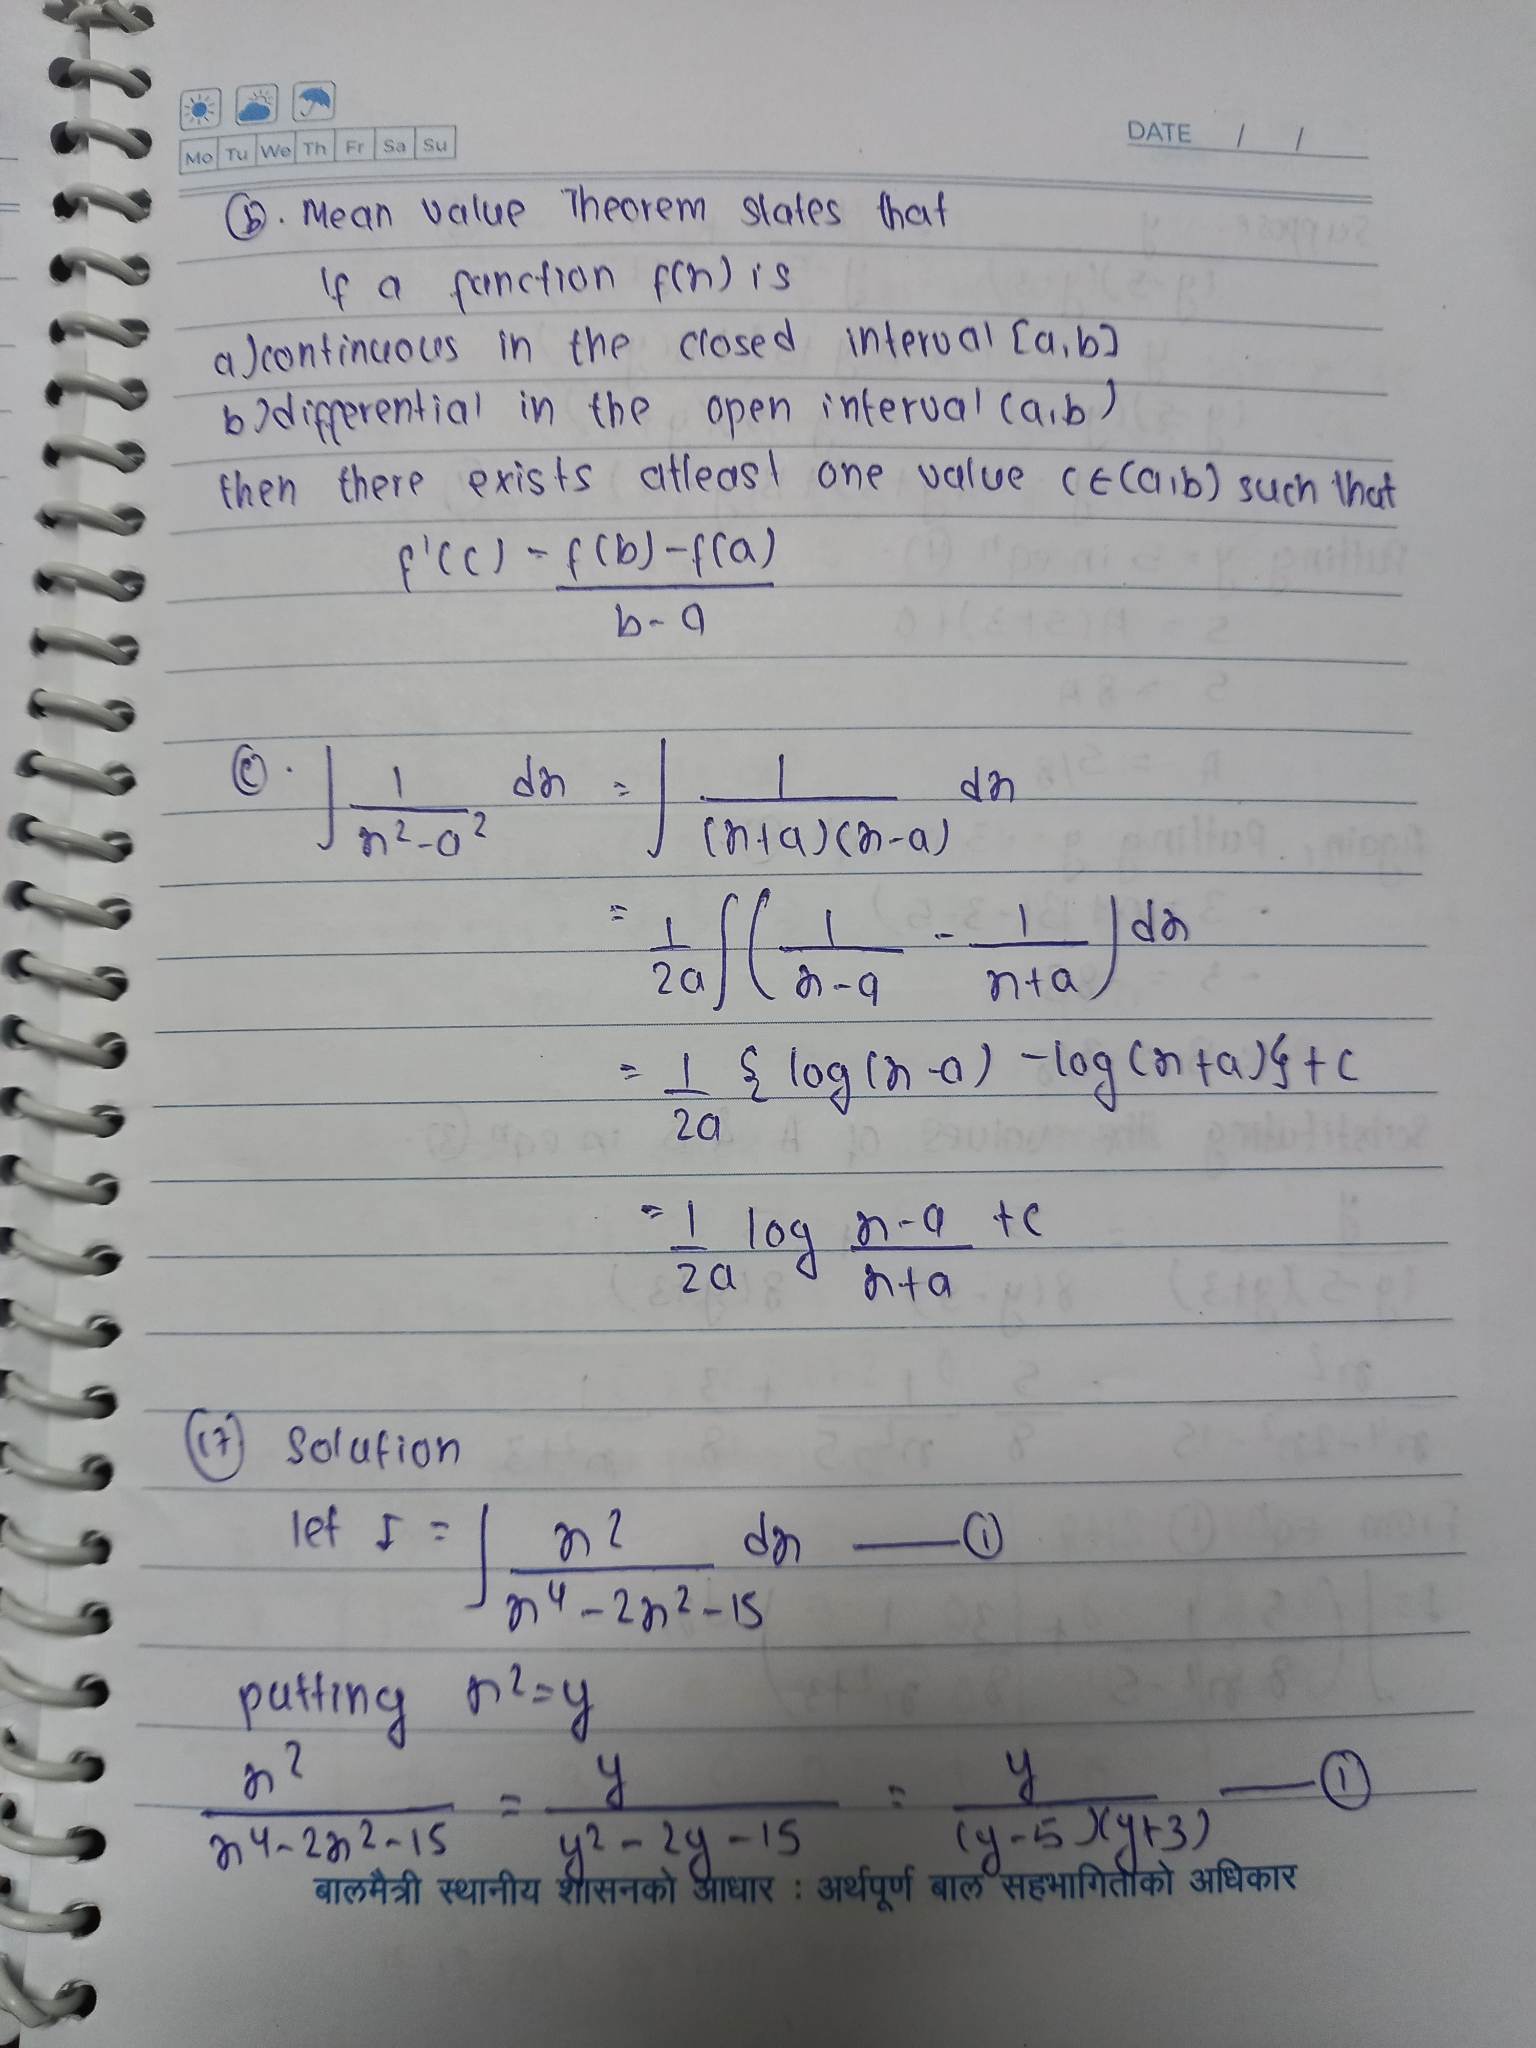 Mo Tu We Th Fr Sa Su
DATE / /
(b). Mean value Theorem states that
If a function f(x) is
a) continuous in the closed interval [a,b]
b) differential in the open interval (a,b)
then there exists atleast one value c∈(a,b) such that
f'(c) = f(b)-f(a) / b-a
(c). ∫ 1/(x²-a²) dx = ∫ 1/((x+a)(x-a)) dx
= 1/2a ∫ (1/(x-a) - 1/(x+a)) dx
= 1/2a { log(x-a) - log(x+a) } + c
= 1/2a log (x-a)/(x+a) + c
(17) Solution
let I = ∫ x²/(x⁴-2x²-15) dx —— (1)
putting x²=y
x²/(x⁴-2x²-15) = y/(y²-2y-15) = y/((y-5)(y+3)) —— (1)
बालमैत्री स्थानीय शासनको आधार : अर्थपूर्ण बाल सहभागिताको अधिकार